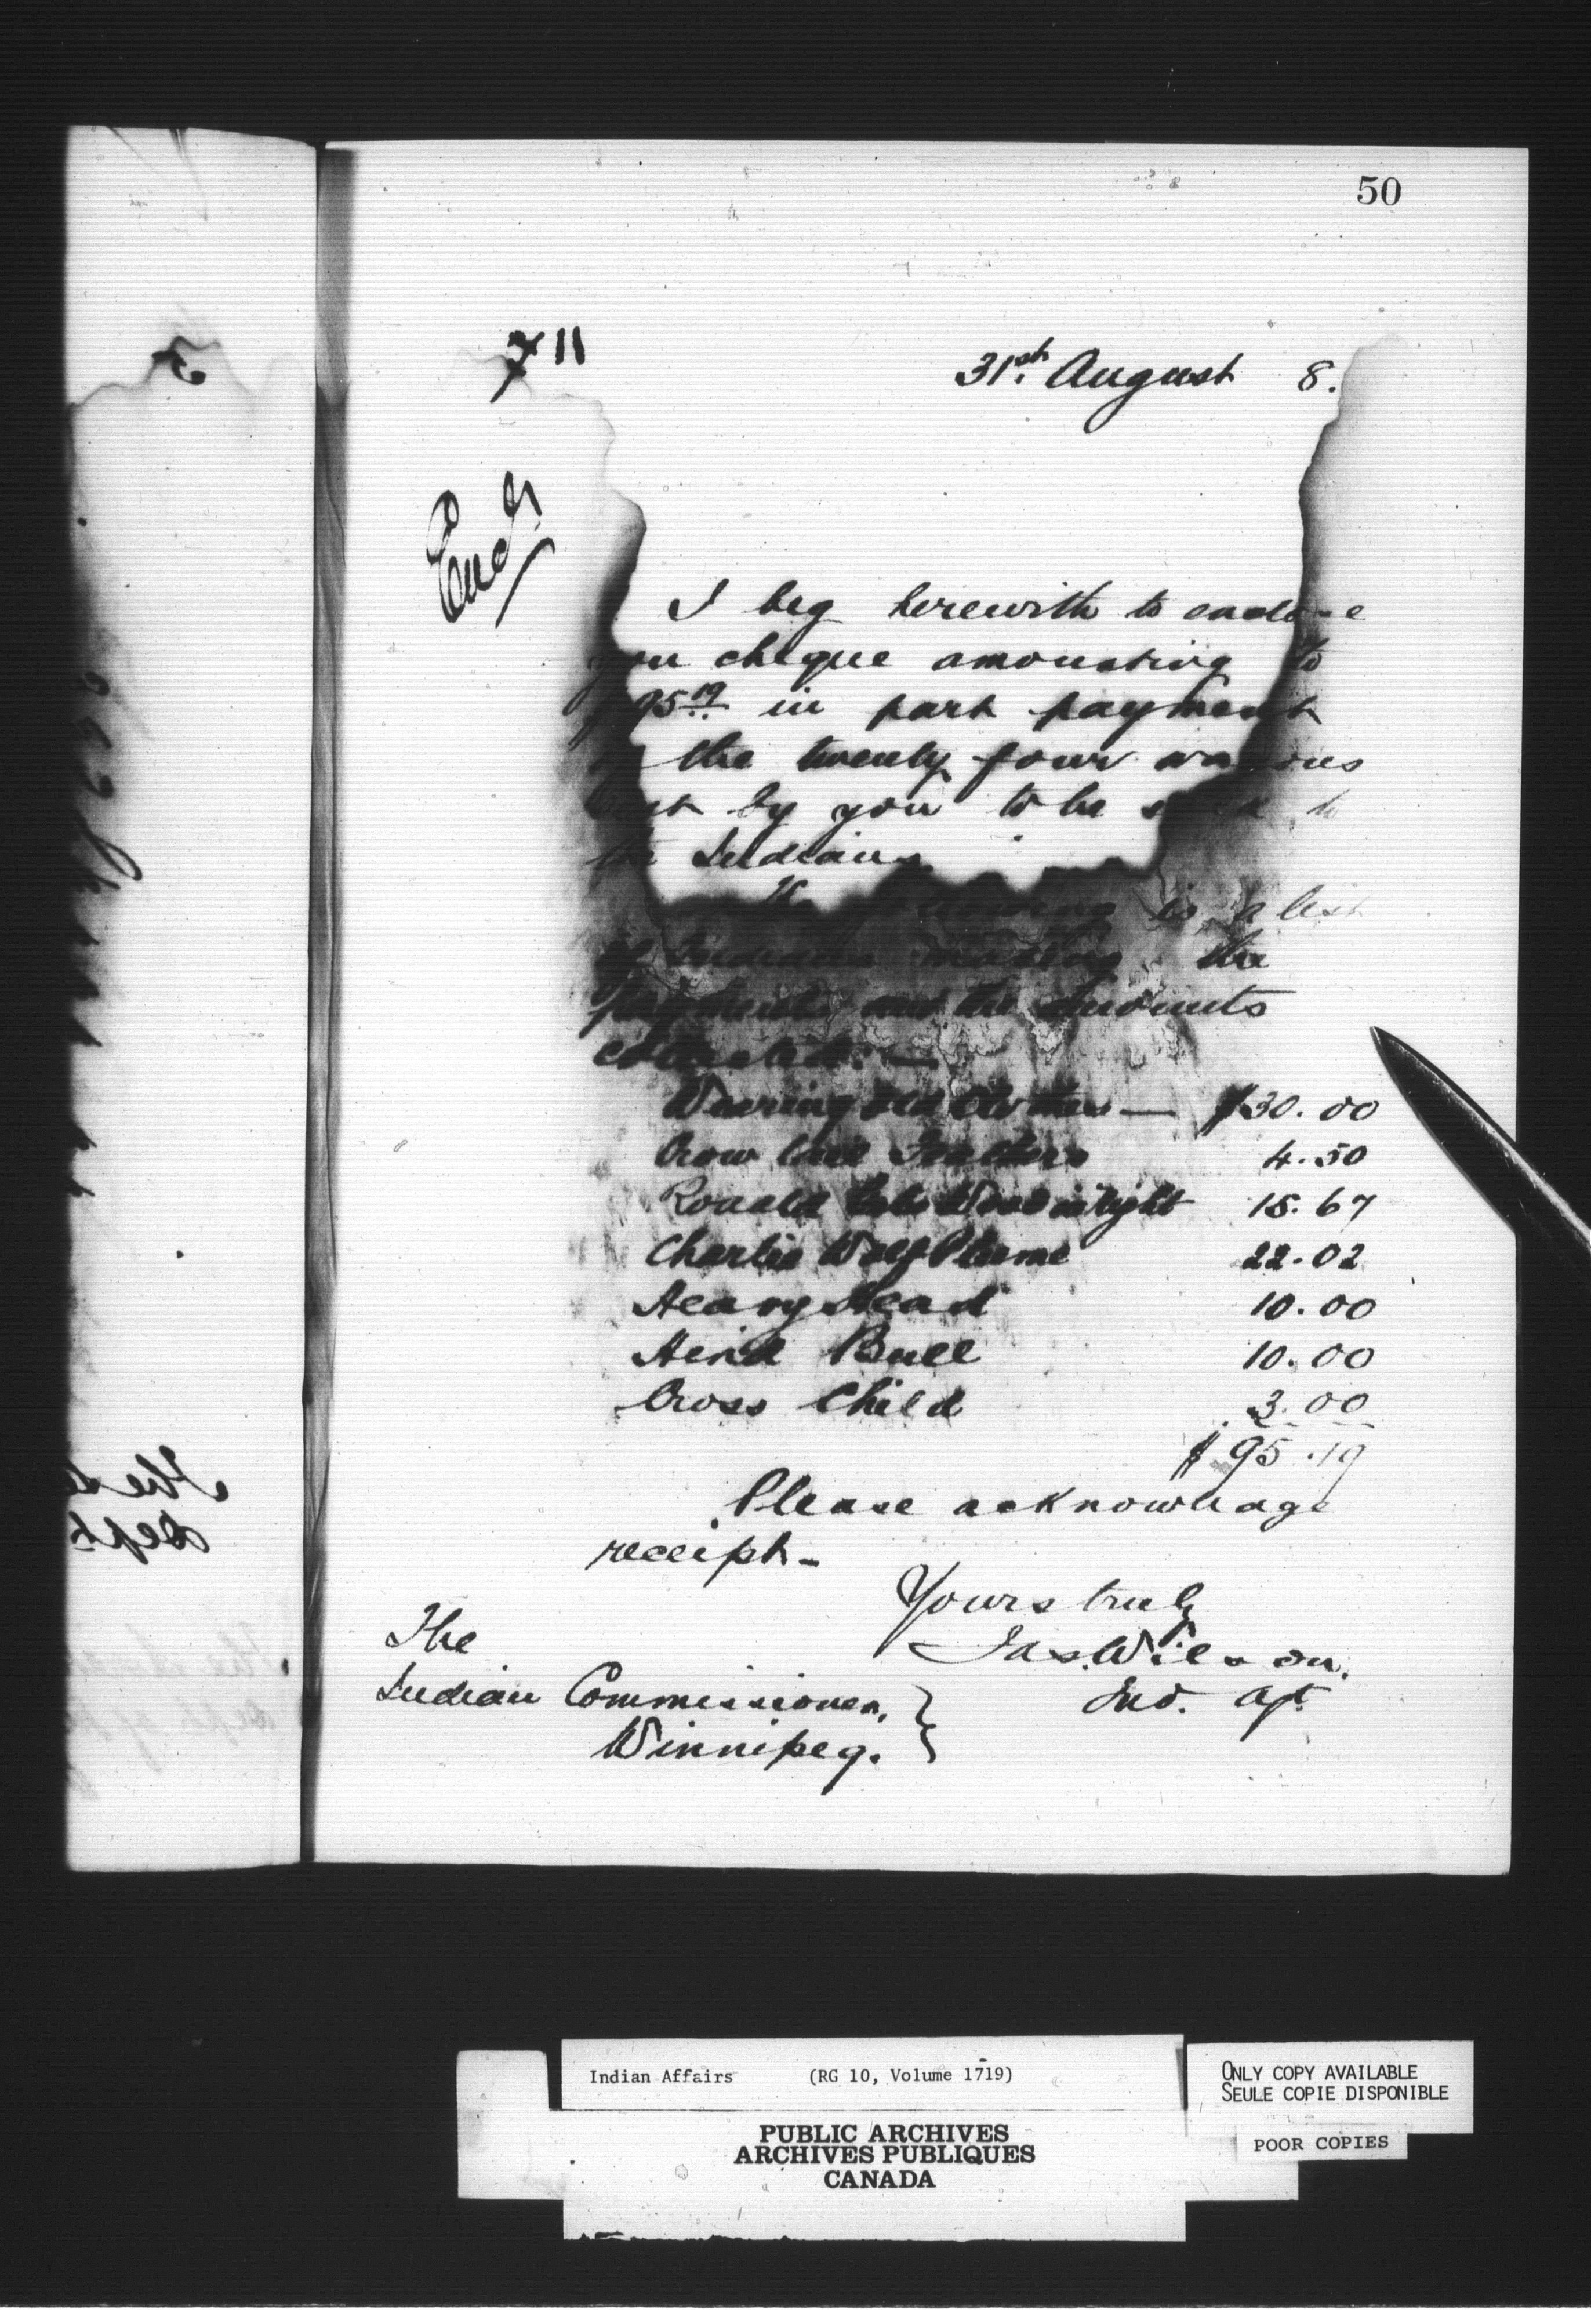 50
31st August 8.
Encl
I beg herewith to enclose
you cheque amounting to
$95.19 in part payment
of the twenty four wagons
sent by you to be sold to
the Indians.
The following is a list
of Indians making the
payments and the amounts
collected:—
Wearing Old Clothes — $30.00
Crow Tail Feathers 4.50
Ronald 15.67
Charlie Wolf Plume 22.02
Heavy Head 10.00
Hind Bull 10.00
Cross Child 3.00
$95.19
Please acknowledge
receipt—
Yours truly
Jas. Wilson.
Ind. Agt.
The
Indian Commissioner,
Winnipeg.
Indian Affairs (RG 10, Volume 1719)
ONLY COPY AVAILABLE
SEULE COPIE DISPONIBLE
PUBLIC ARCHIVES
ARCHIVES PUBLIQUES
CANADA
POOR COPIES